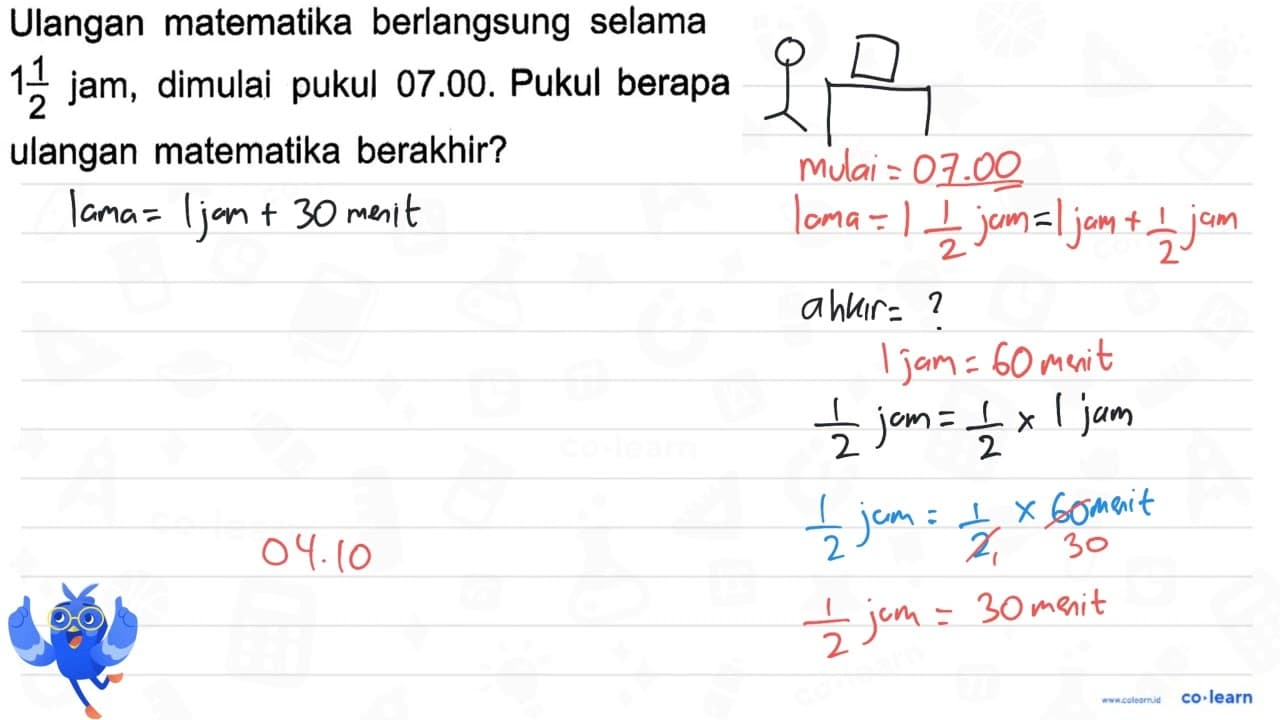 Ulangan matematika berlangsung selama
1 1/2 jam, dimulai pukul 07.00. Pukul berapa
ulangan matematika berakhir?
lama = 1 jam + 30 menit
04.10
mulai = 07.00
lama = 1 1/2 jam = 1 jam + 1/2 jam
ahkir = ?
1 jam = 60 menit
1/2 jam = 1/2 x 1 jam
1/2 jam = 1/2 x 60 menit
1 30
1/2 jam = 30 menit
www.colearn.id co·learn